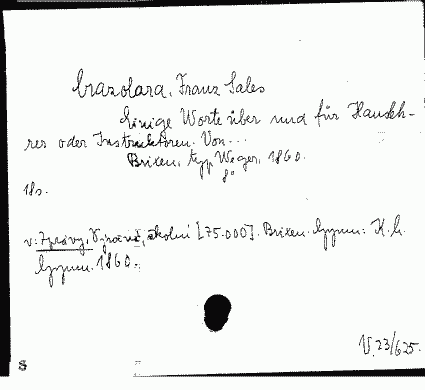 Crazolara, Franz Sales
Einige Worte über und für Hausleh-
rer oder Instruktoren. Von...
Brixen, typ Weger, 1860.
8°
18s.
v: Zprávy, Výroční, školní [75.000]. Brixen. Gymn: K.k.
Gymn. 1860.
V.23/625.
S